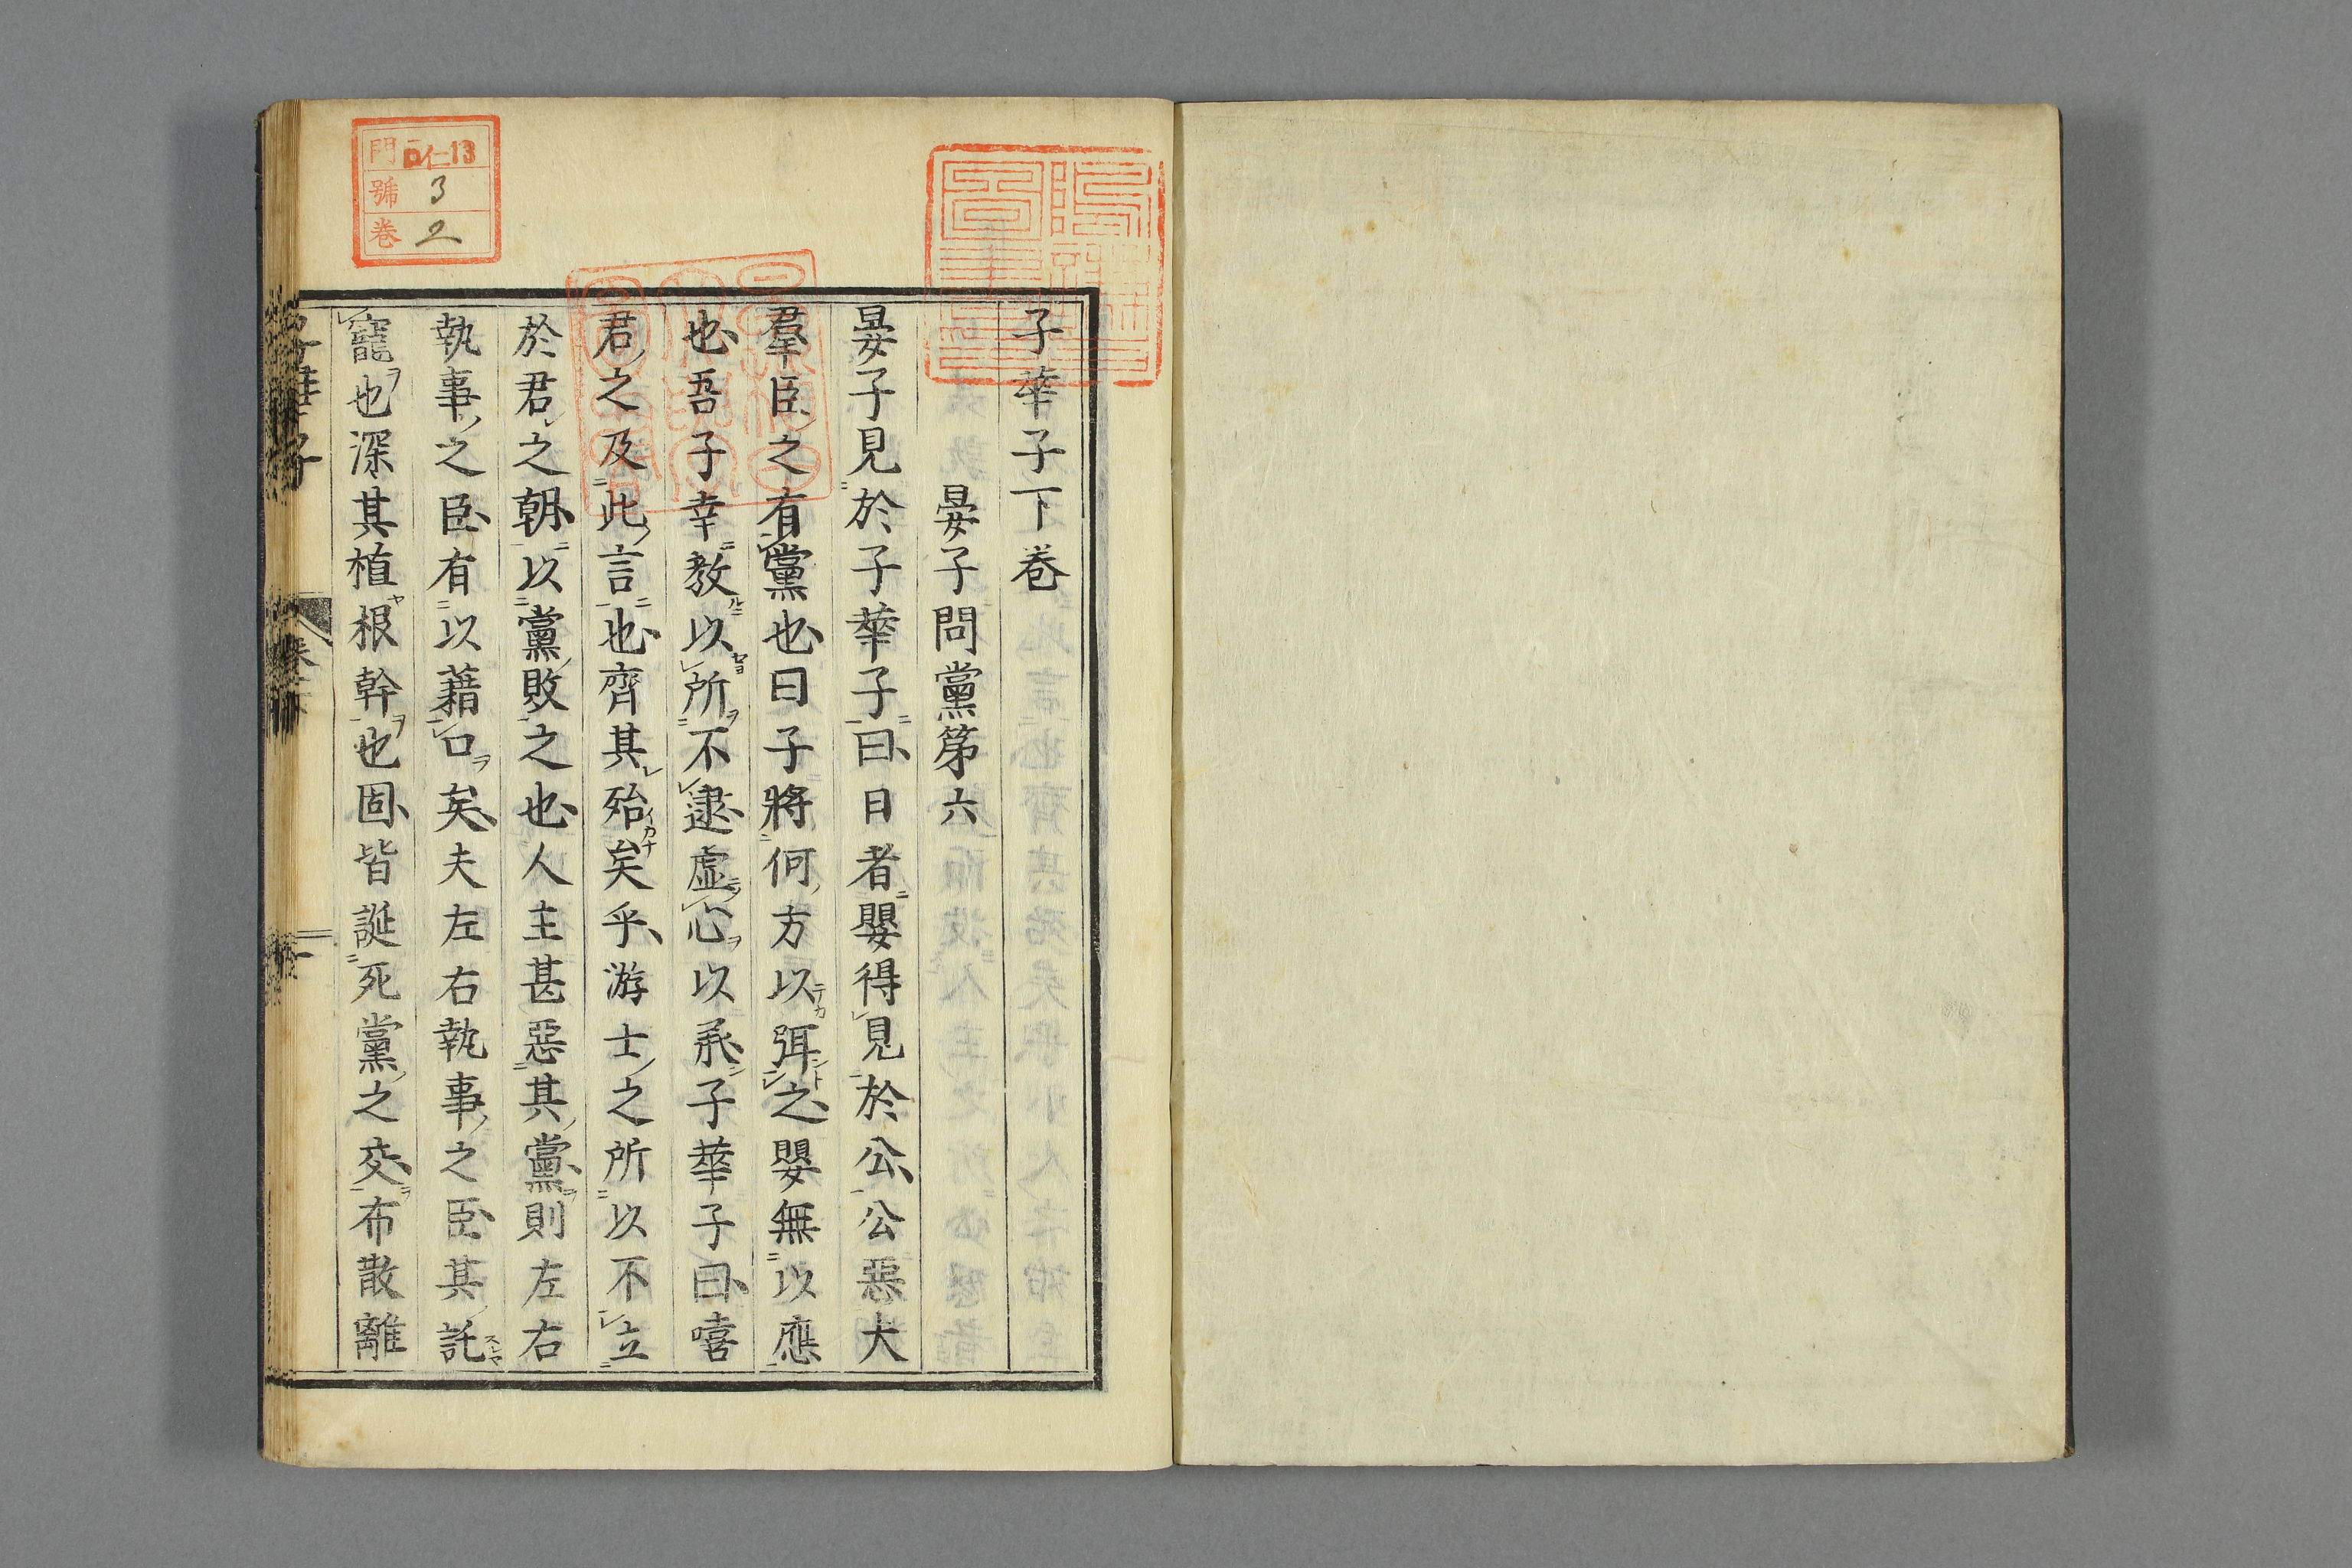 子華子下卷
晏子問黨第六
晏子見於子華子曰日者嬰得見於公公惡大
羣臣之有黨也曰子將何方以弭之嬰無以應
也吾子幸教以所不逮虛心以承子華子曰嘻
君之及此言也齊其殆矣乎游士之所以不立
於君之朝以黨敗之也人主甚惡其黨則左右
執事之臣有以藉口矣夫左右執事之臣其託
寵也深其植根幹也固皆誕死黨之交布散離
子華子
門 口仁13
號 3
卷 2